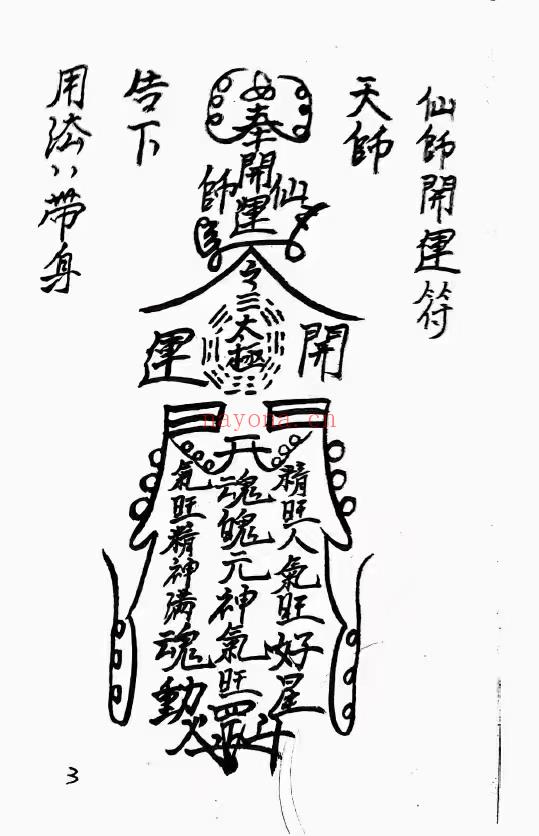 仙師開運符
天師
奉
開運
仙師
令
太極
開運
精旺人氣旺好星
魂魄元神氣旺四
氣旺精神滿魂動
告下
用法:带身
nayona.cn
3